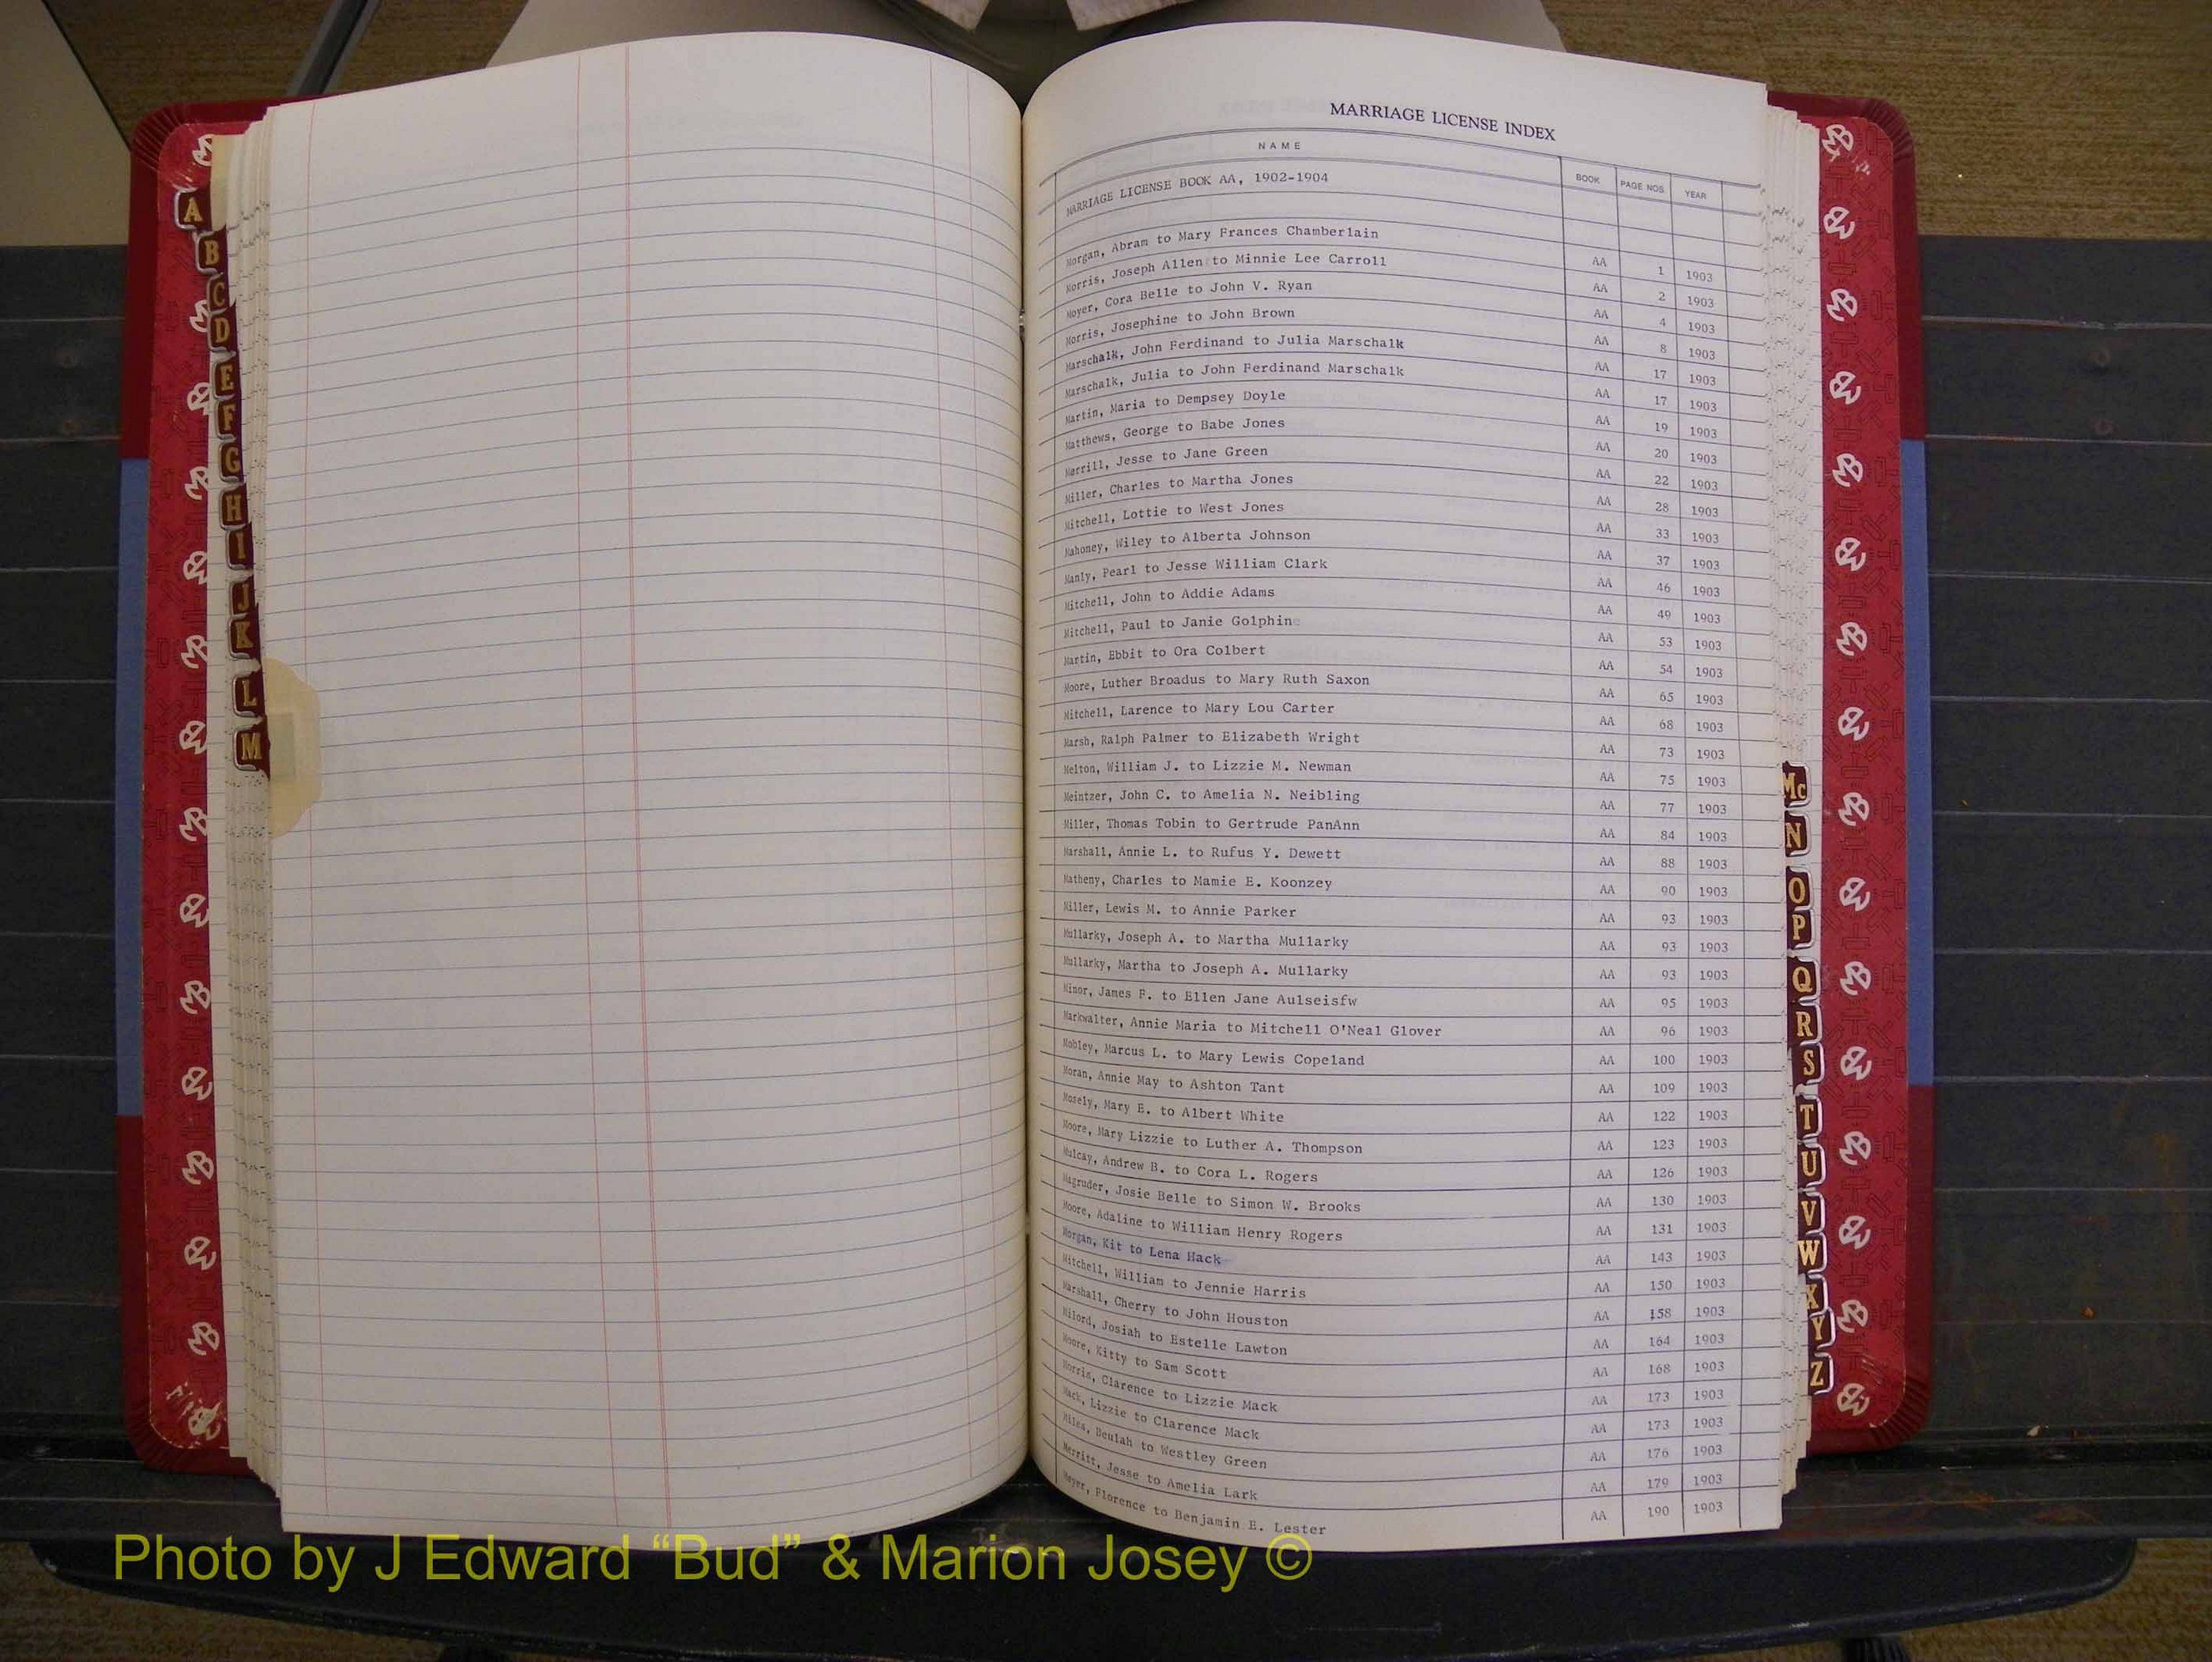 MARRIAGE LICENSE INDEX
NAME BOOK PAGE NOS. YEAR
MARRIAGE LICENSE BOOK AA, 1902-1904
Morgan, Abram to Mary Frances Chamberlain AA 1 1903
Morris, Joseph Allen to Minnie Lee Carroll AA 2 1903
Moyer, Cora Belle to John V. Ryan AA 4 1903
Morris, Josephine to John Brown AA 8 1903
Marschalk, John Ferdinand to Julia Marschalk AA 17 1903
Marschalk, Julia to John Ferdinand Marschalk AA 17 1903
Martin, Maria to Dempsey Doyle AA 19 1903
Matthews, George to Babe Jones AA 20 1903
Merrill, Jesse to Jane Green AA 22 1903
Miller, Charles to Martha Jones AA 28 1903
Mitchell, Lottie to West Jones AA 33 1903
Mahoney, Wiley to Alberta Johnson AA 37 1903
Manly, Pearl to Jesse William Clark AA 46 1903
Mitchell, John to Addie Adams AA 49 1903
Mitchell, Paul to Janie Golphine AA 53 1903
Martin, Ebbit to Ora Colbert AA 54 1903
Moore, Luther Broadus to Mary Ruth Saxon AA 65 1903
Mitchell, Larence to Mary Lou Carter AA 68 1903
Marsh, Ralph Palmer to Elizabeth Wright AA 73 1903
Melton, William J. to Lizzie M. Newman AA 75 1903
Meintzer, John C. to Amelia N. Neibling AA 77 1903
Miller, Thomas Tobin to Gertrude PanAnn AA 84 1903
Marshall, Annie L. to Rufus Y. Dewett AA 88 1903
Matheny, Charles to Mamie E. Koonzey AA 90 1903
Miller, Lewis M. to Annie Parker AA 93 1903
Mullarky, Joseph A. to Martha Mullarky AA 93 1903
Mullarky, Martha to Joseph A. Mullarky AA 93 1903
Minor, James F. to Ellen Jane Aulseisfw AA 95 1903
Markwalter, Annie Maria to Mitchell O'Neal Glover AA 96 1903
Mobley, Marcus L. to Mary Lewis Copeland AA 100 1903
Moran, Annie May to Ashton Tant AA 109 1903
Mosely, Mary E. to Albert White AA 122 1903
Moore, Mary Lizzie to Luther A. Thompson AA 123 1903
Mulcay, Andrew B. to Cora L. Rogers AA 126 1903
Magruder, Josie Belle to Simon W. Brooks AA 130 1903
Moore, Adaline to William Henry Rogers AA 131 1903
Morgan, Kit to Lena Hack AA 143 1903
Mitchell, William to Jennie Harris AA 150 1903
Marshall, Cherry to John Houston AA 158 1903
Milord, Josiah to Estelle Lawton AA 164 1903
Moore, Kitty to Sam Scott AA 168 1903
Morris, Clarence to Lizzie Mack AA 173 1903
Mack, Lizzie to Clarence Mack AA 173 1903
Miles, Beulah to Westley Green AA 176 1903
Merritt, Jesse to Amelia Lark AA 179 1903
Meyer, Florence to Benjamin E. Lester AA 190 1903
A
B
C
D
E
F
G
H
I
J
K
L
M
Mc
N
O
P
Q
R
S
T
U
V
W
X
Y
Z
Photo by J Edward “Bud” & Marion Josey ©